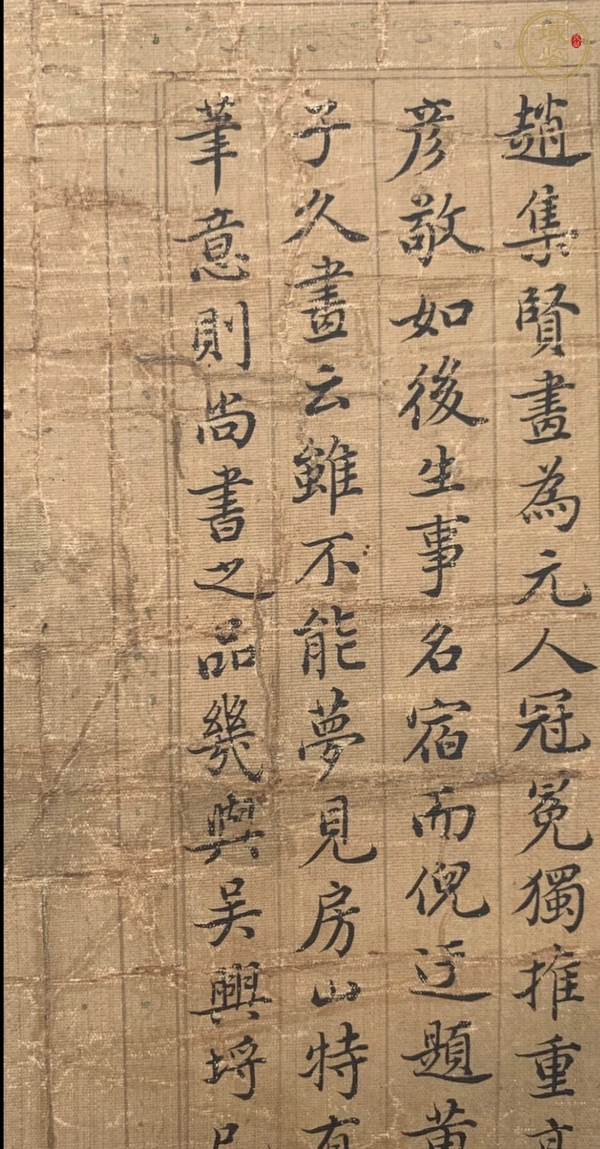 趙集賢畫為元人冠冕獨推重高
彦敬如後生事名宿而倪迂題黄
子久畫云雖不能夢見房山特有
筆意則尚書之品幾與吴興埒